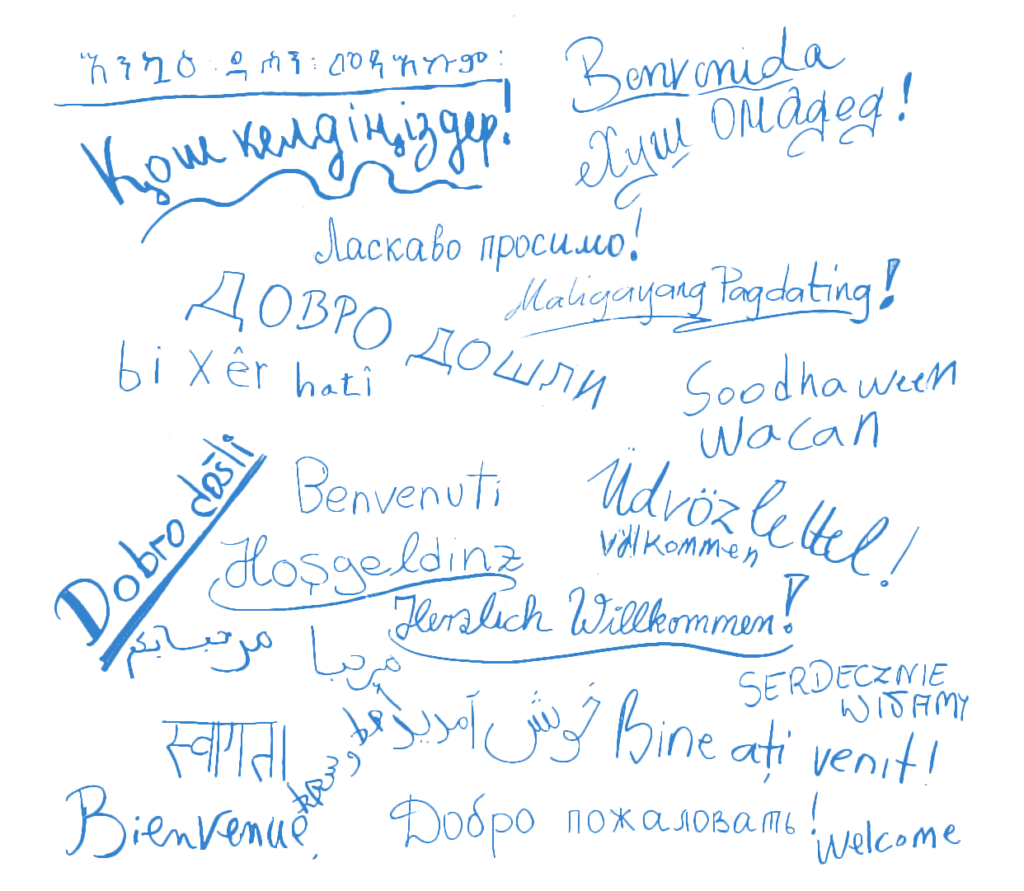 እንኳዕ ደሓን መጻእኩም
Benvenida
Қош келдіңіздер!
Хуш омадед!
Ласкаво просимо!
ДОБРО ДОШЛИ
Maligayang Pagdating!
bi xêr hatî
Soodhaween
wacan
Dobro došli
Benvenuti
Üdvözlettel!
Välkommen
Hoşgeldinz
Herzlich Willkommen!
مرحبا بكم
مرحبا
SERDECZNIE
WITAMY
خوش آمدید
Bine ați venit!
स्वागता
Bienvenue
Добро пожаловать!
Welcome